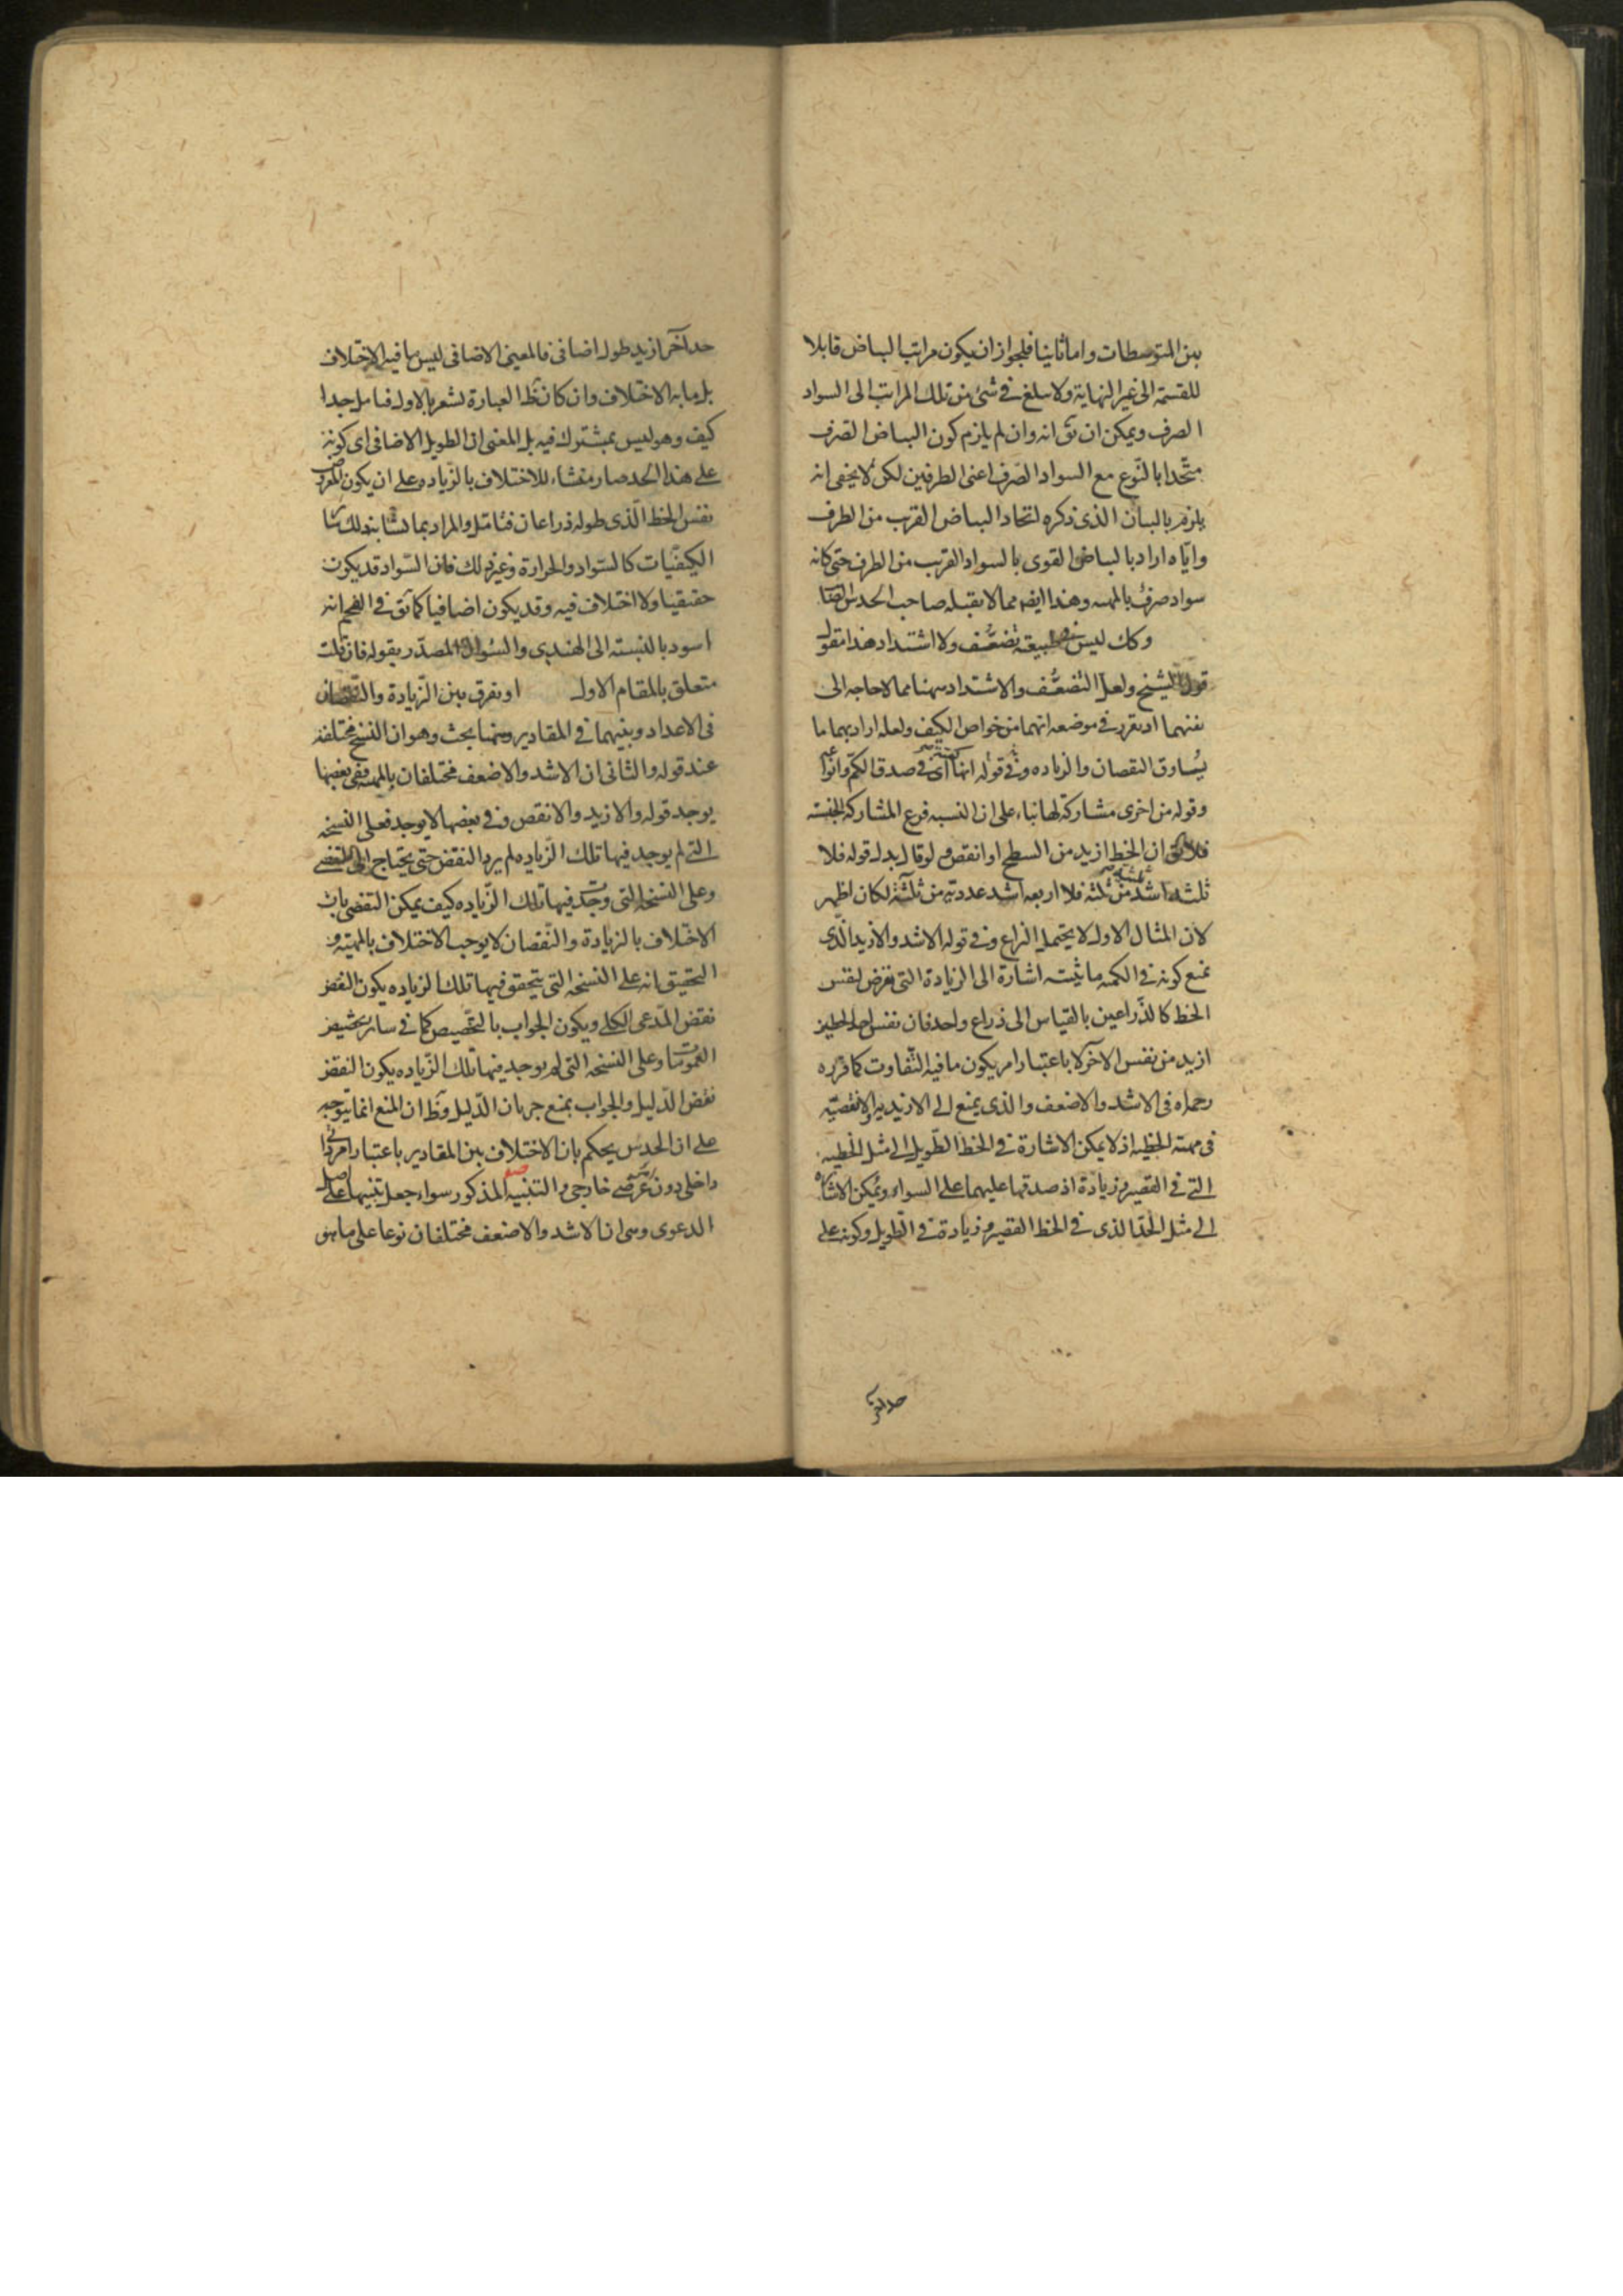 بين المتوسطات واما ثانيا فلجواز ان يكون مراتب البياض قابلا
للقسمة الى غير النهاية ولا يبلغ في شئ من تلك المراتب الى السواد
الصرف ويمكن ان يق انه وان لم يلزم كون البياض الصرف
متحدا بالنوع مع السواد الصرف اعنى الطرفين لكن لا يخفى انه
يلزم بالبيان الذى ذكره اتحاد البياض القرب من الطرف
واياه اراد بالبياض القوى بالسواد القريب من الطرف حتى كانه
سواد صرف بالمهيه وهذا ايضا مما لا يقبله صاحب الحدس
وكك ليس في طبيعته تضعف ولا اشتداد هذا مقول
قول الشيخ ولعل التضعف والاشتداد ههنا مما لا حاجه الى
نفيهما اذ تقرر في موضعه انهما من خواص الكيف ولعله اراد بهما ما
يساوق النقصان والزياده وفي قوله انها اى في صدق الكم
وقوله من اخرى مشاركة لها بناء على ان النسبه فرع المشاركه الجنسيه
فلا يق ان الخط ازيد من السطح او انقص ولو قال بدل قوله فلا
ثلثه اشد من ثلثه فلا اربعه اشد عدديه من ثلثه لكان اظهر
لان المثال الاول لا يحتمل النزاع وفي قوله الاشد والازيد الذى
يمنع كونه في الكميه ما يثبته اشارة الى الزيادة التى تعرض لنفس
الخط كالذراعين بالقياس الى ذراع واحد فان نفس احد الخطين
ازيد من نفس الآخر لا باعتبار امر يكون ما فيه التفاوت كما قرره
رحمه الله في الاشد والاضعف والذى يمنع الى الازيديه والانقصيه
في مهية الخطيه اذ لا يمكن الاشارة في الخط الطويل الى مثل الخطيه
التى في القصير وزيادة اذ صدقها عليهما على السواء ويمكن الاشاره
الى مثل الحد الذى في الخط القصير وزيادة في الطويل وكونه على
حد آخر ازيد طول اضافى فالمعنى الاضافى ليس ما فيه الاختلاف
بل ما به الاختلاف وان كان ظ العبارة تشعر بالاول فتامل جدا
كيف وهو ليس بمشترك فيه بل المعنى ان الطويل الاضافى اى كونه
على هذا الحد صار منشاء للاختلاف بالزياده على ان يكون المعروض
نفس الخط الذى طوله ذراعان فتامل والمراد بما
الكيفيات كالسواد والحرارة وغير ذلك فان السواد قد يكون
حقيقيا ولا اختلاف فيه وقد يكون اضافيا كما يق في الفحم انه
اسود بالنسبة الى الهندى والسؤال المصدر بقوله فان قلت
متعلق بالمقام الاول او يفرق بين الزيادة والنقصان
في الاعداد وبينهما في المقادير وههنا بحث وهو ان النسخ مختلفة
عند قوله والثانى ان الاشد والاضعف مختلفان بالمهيه ففى بعضها
يوجد قوله والازيد والانقص وفي بعضها لا يوجد فعلى النسخه
التى لم يوجد فيها تلك الزياده لم يرد النقض حتى يحتاج الى التفصى
وعلى النسخه التى وجدت فيها تلك الزياده كيف يمكن التفصى بان
الاختلاف بالزيادة والنقصان لا يوجب الاختلاف بالمهية و
التحقيق انه على النسخه التى يتحقق فيها تلك الزياده يكون النقض
نقض المدعى الكلى ويكون الجواب بالتخصيص كما في ساير تخصيص
العمومات وعلى النسخه التى لم يوجد فيها تلك الزياده يكون النقض
نقض الدليل والجواب بمنع جريان الدليل وظ ان المنع انما يتوجه
على ان الحدس يحكم بان الاختلاف بين المقادير باعتبار امر
داخلى دون عرضى خارجى والتنبيه المذكور سواء جعل تنبيها على اصل
الدعوى وهى ان الاشد والاضعف مختلفان نوعا على ما هو